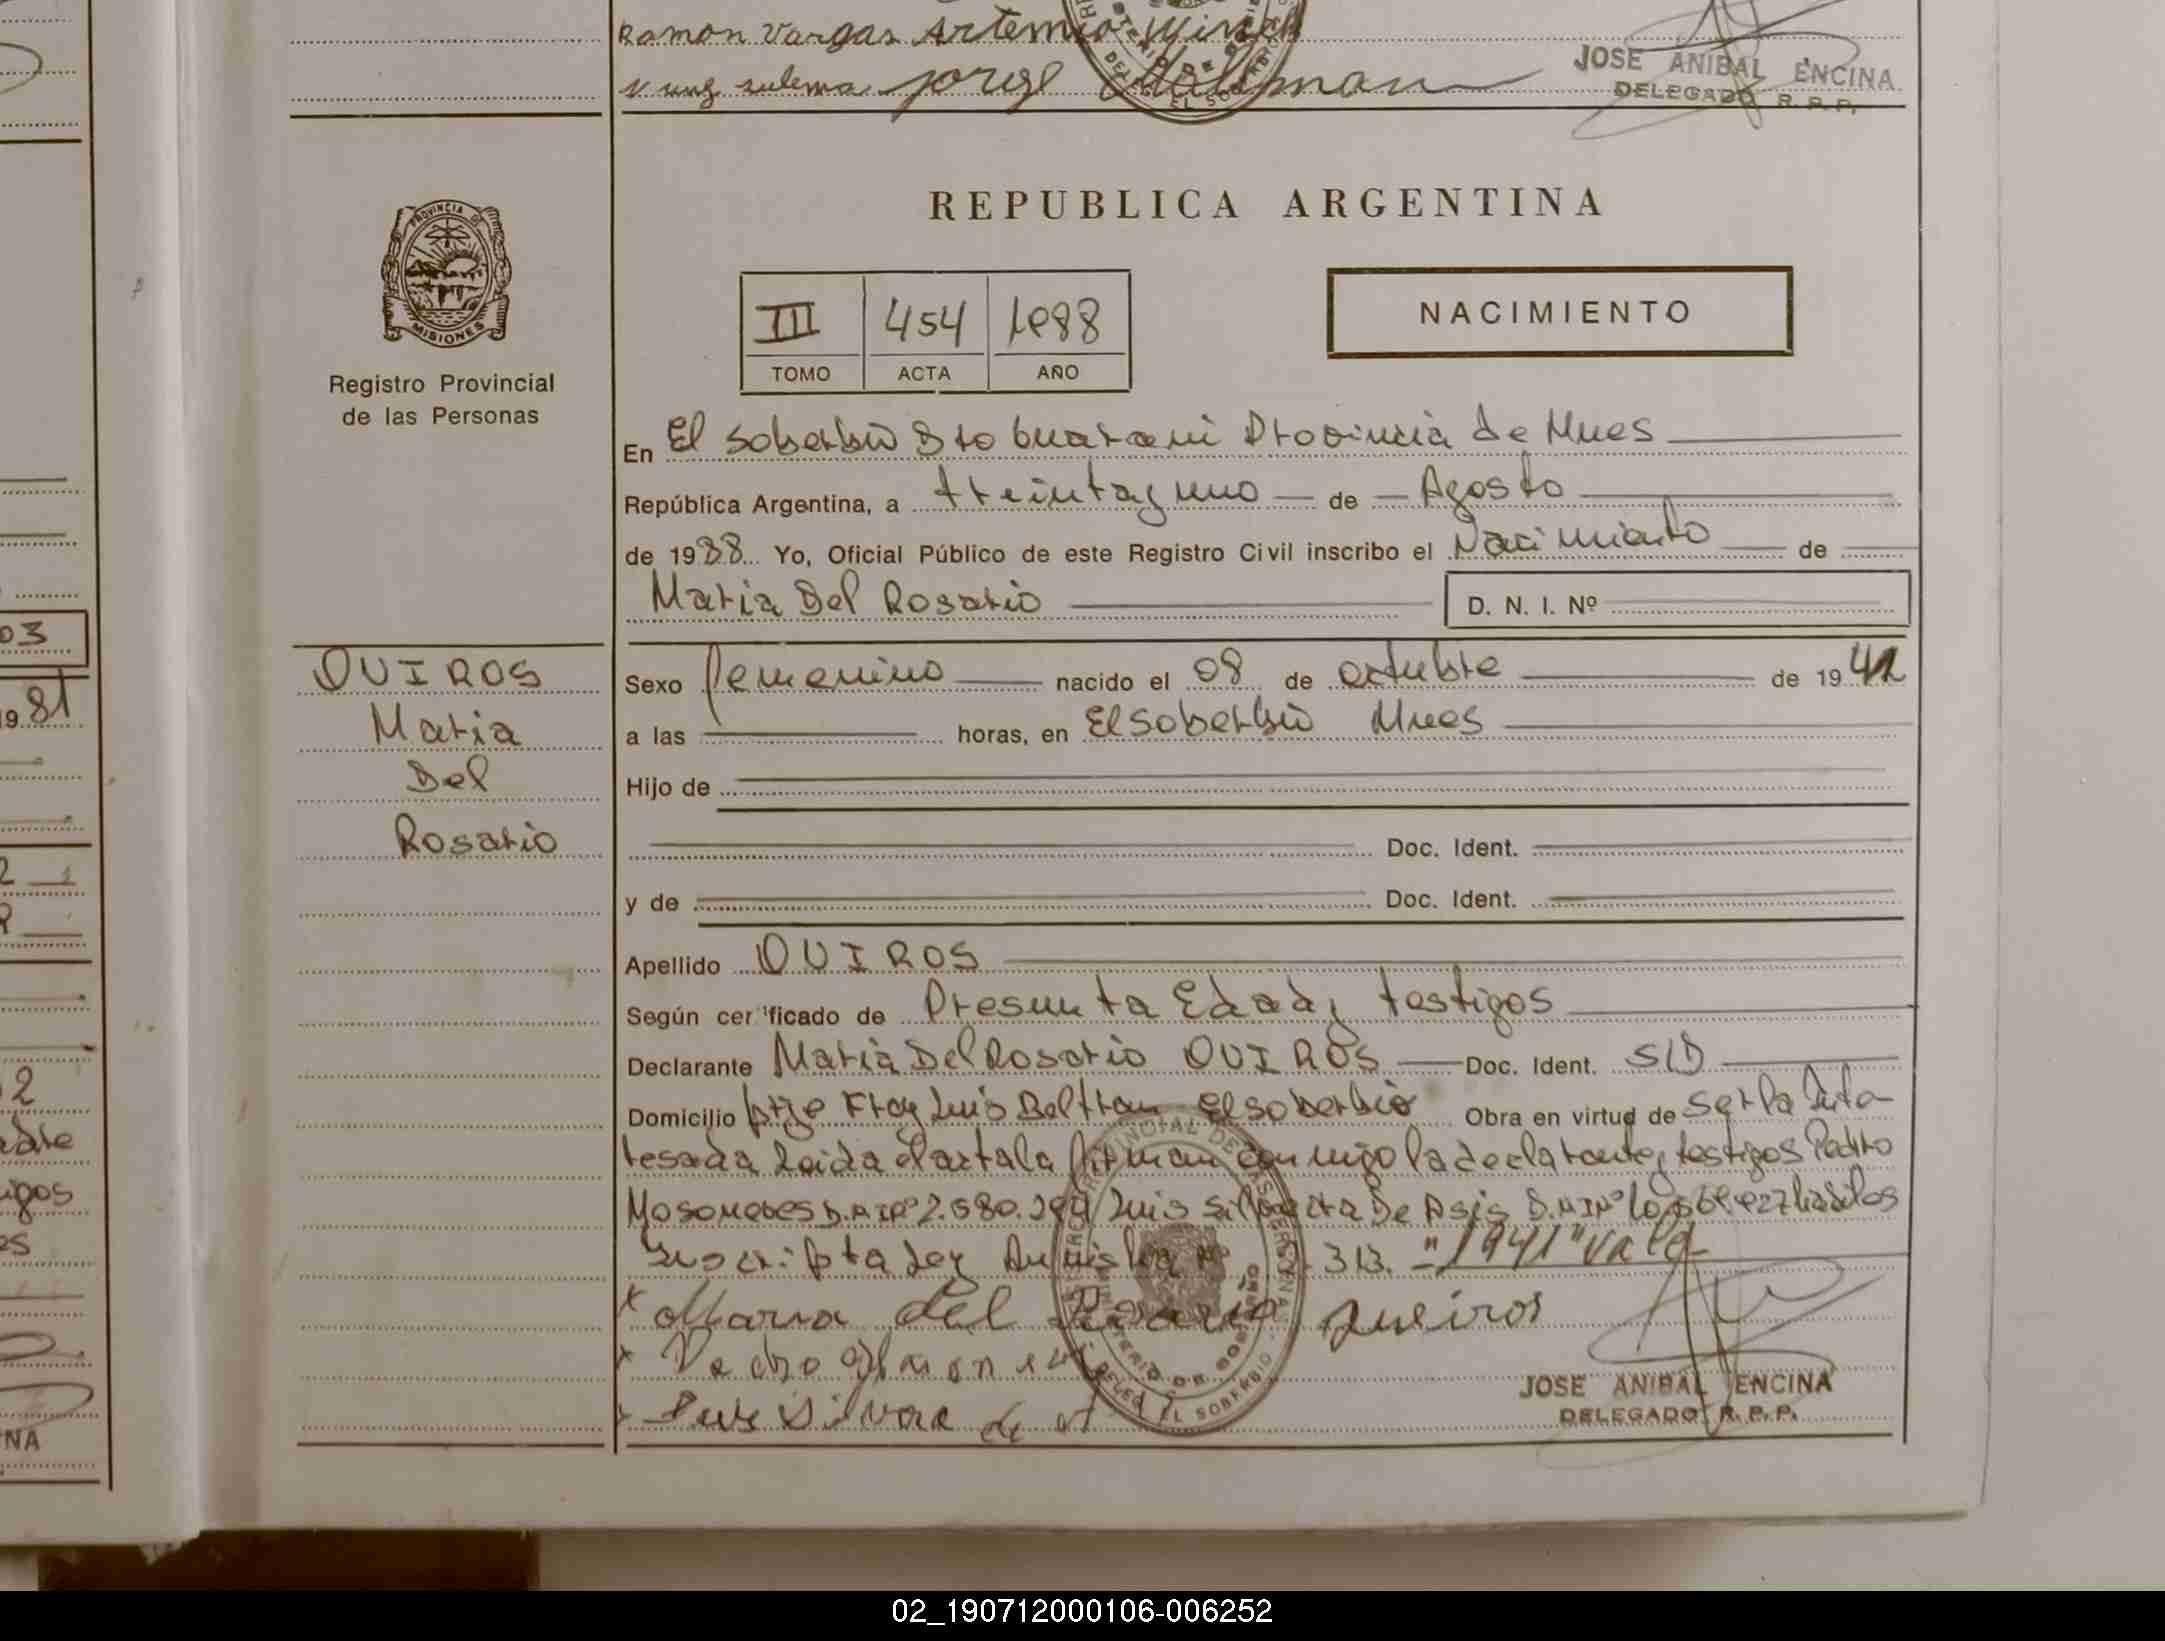 Ramon Vargas Artemio
Jorge
JOSE ANIBAL ENCINA
DELEGADO R. P. P.
PROVINCIA DE
MISIONES
Registro Provincial
de las Personas
REPUBLICA ARGENTINA
III 454 1988
TOMO ACTA AÑO
NACIMIENTO
En El Soberbio Dto Guarani Provincia de Mnes
República Argentina, a treinta y uno de Agosto
de 1988 Yo, Oficial Público de este Registro Civil inscribo el Nacimiento de
Maria Del Rosario D. N. I. Nº
QUIROS
Maria
Del
Rosario
Sexo femenino nacido el 08 de octubre de 1941
a las horas, en El Soberbio Mnes
Hijo de
Doc. Ident.
y de Doc. Ident.
Apellido QUIROS
Según certificado de Presunta Edad y testigos
Declarante Maria Del Rosario QUIROS Doc. Ident. S/D
Domicilio Pje Fray Luis Beltran El Soberbio Obra en virtud de Ser la Inte
resada Leida el acta la firman conmigo la declarante y testigos Pedro
D.N.I Nº 2.580. Luis Silveira De Asis D.N.I Nº habiles
Inscripta Ley 313. - "1941" Vale-
x Maria del Rosario Queiros
x Pedro
x Luis Silvera de
JOSE ANIBAL ENCINA
DELEGADO R. P. P.
03
1981
2
adre
igos
es
NA
02_190712000106-006252